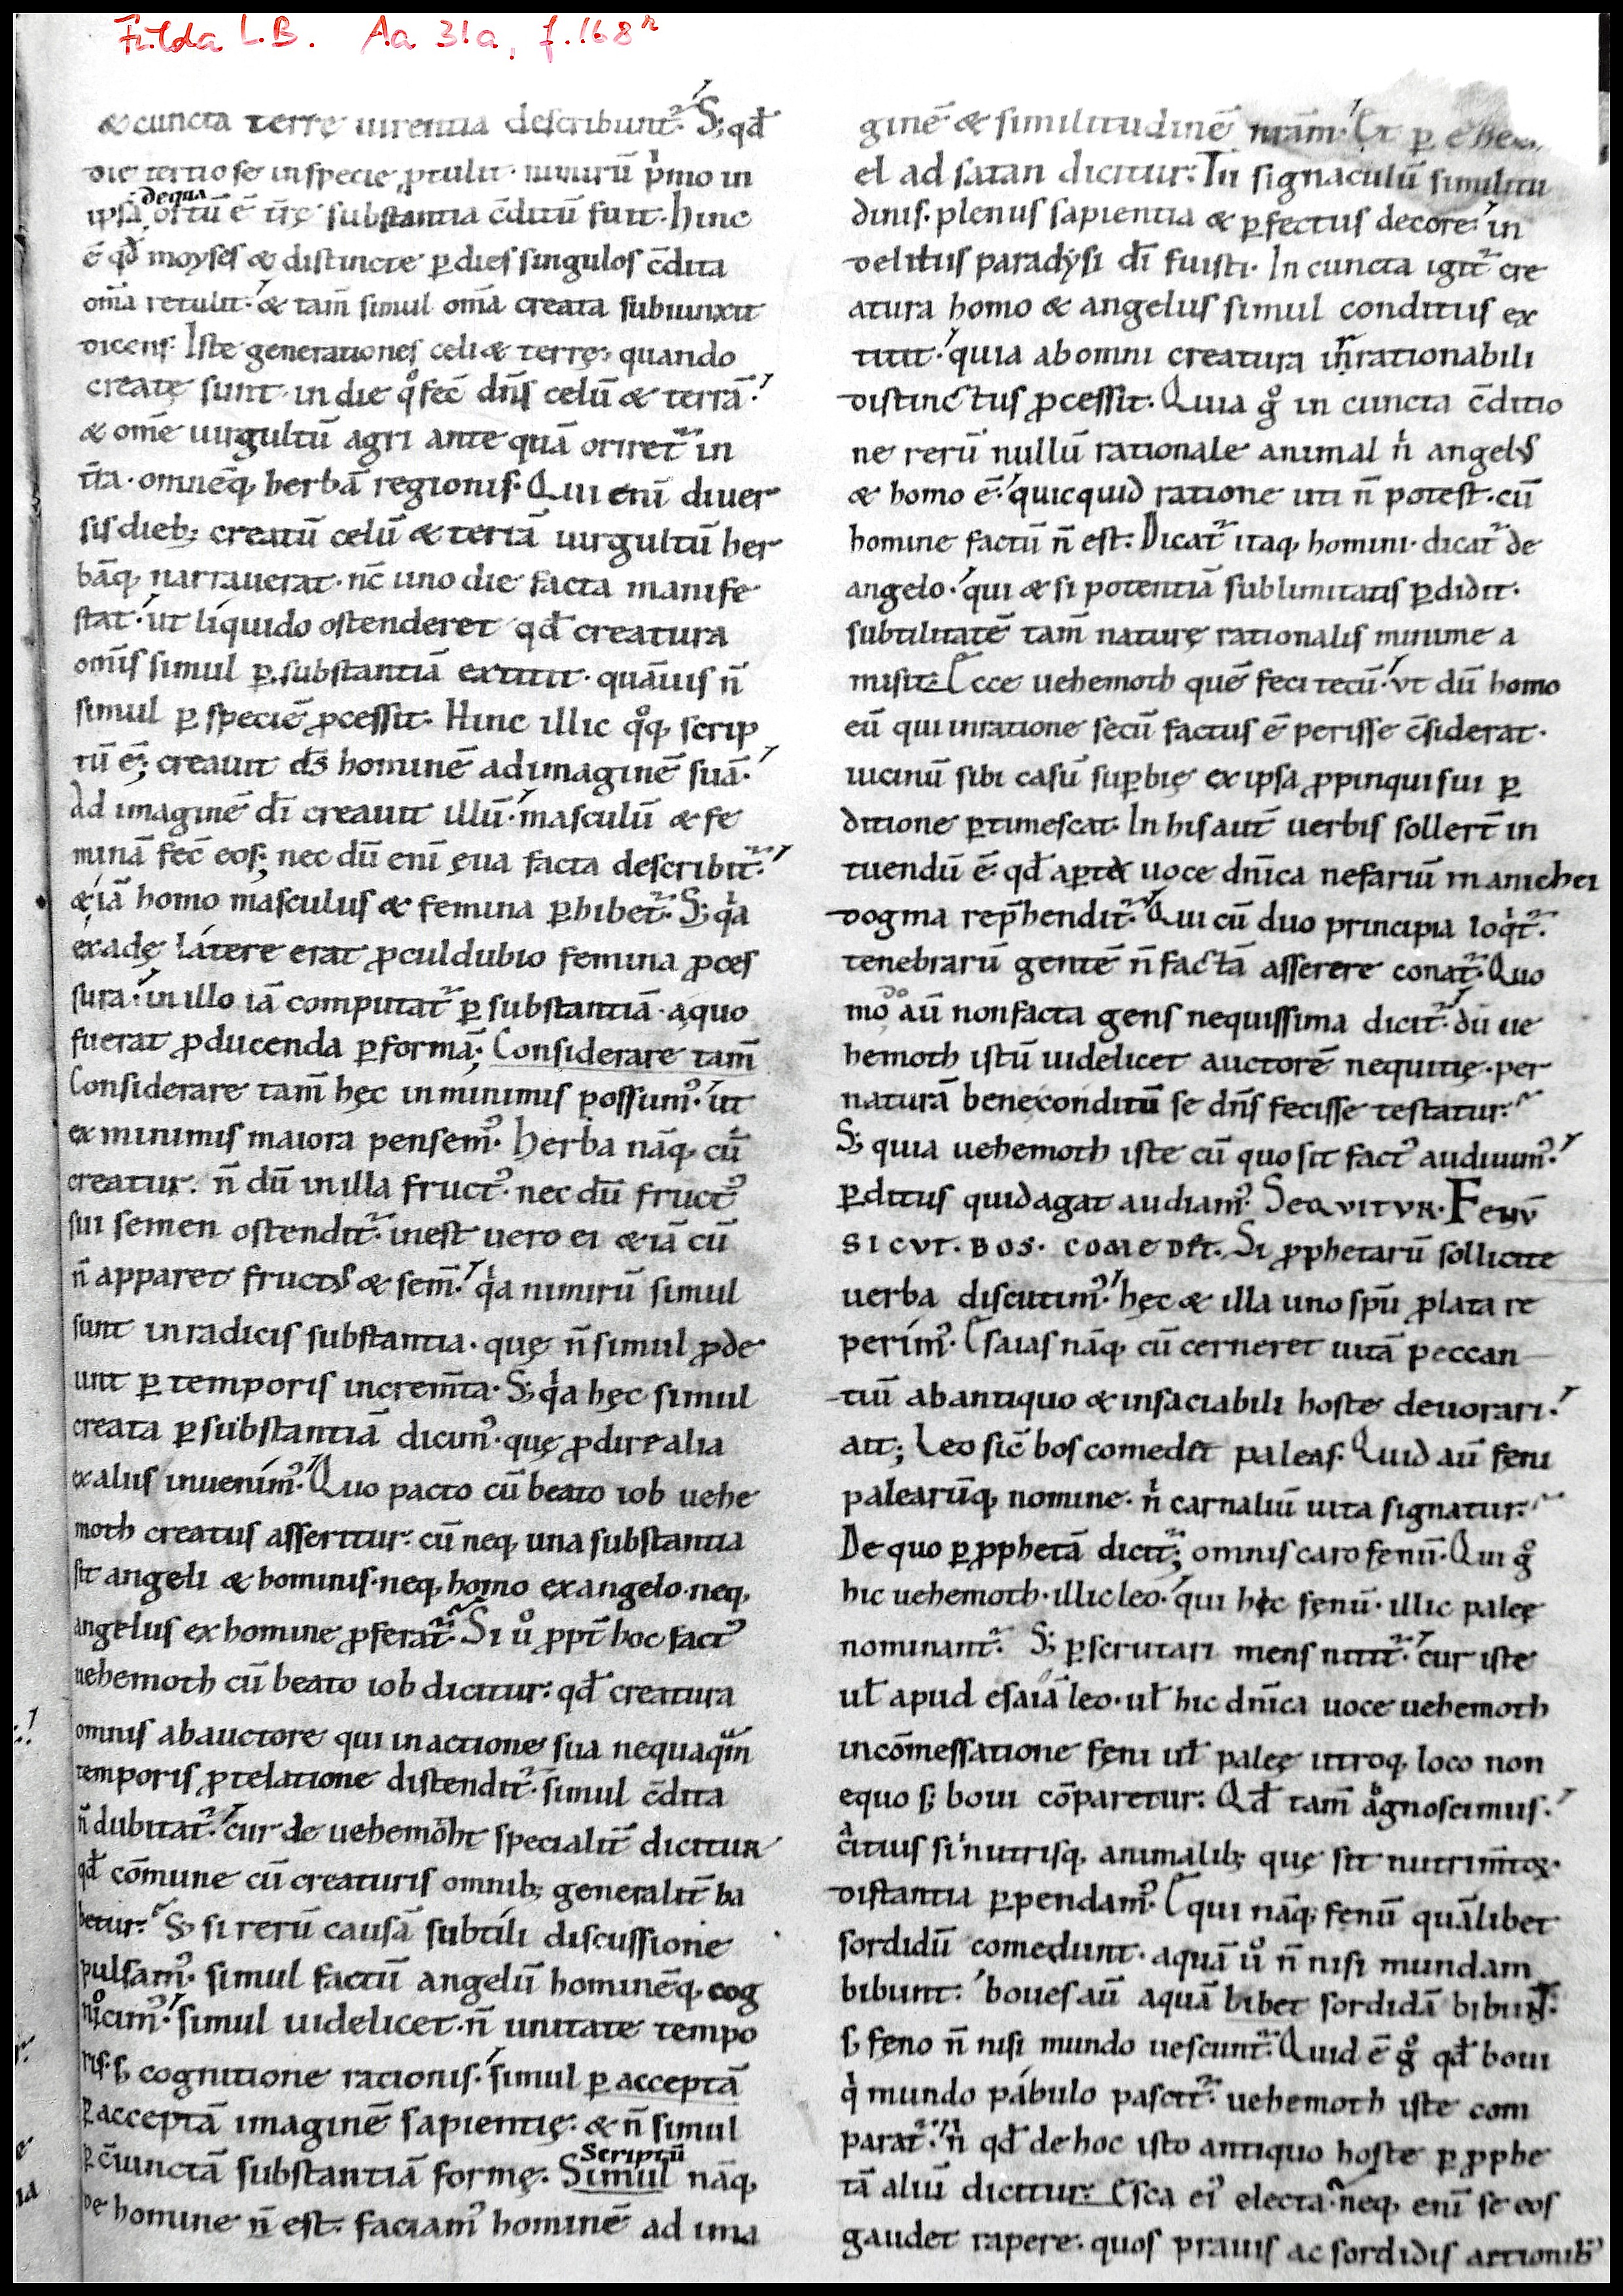 Fulda L.B. Aa 31a, f. 168r
& cuncta terrę uirentia describunt᷑. S; qđ
die tertio se in specie ꝓtulit. nimirū pͥmo in
ipsa dequa ortū ē tr̄ę substantia c̄ditū fuit. Hinc
ē qđ moyses & distincte ꝑ dies singulos c̄dita
om̄a retulit. & tam̄ simul om̄a creata subiunxit
dicens. Iste generationes celi & terrę; quando
creatę sunt. in die qͦ fec̄ dn̄s celū & terrā.
& om̄e uirgultū agri ante quā oriret᷑ in
tr̄a. omnēq; herbā regionis. Qui enī diuer
sis dieb; creatū celū & terrā uirgultū her
bāq; narrauerat. nc̄ uno die facta manife
stat. ut liquido ostenderet qđ creatura
om̄is simul ꝑ substantiā extitit. quāuis n̄
simul ꝑ speciē ꝓcessit. Hinc illic qͦq; scrip
tū ē; creauit ds̄ hominē ad imaginē suā.
Ad imaginē dī creauit illū. masculū & fe
minā fec̄ eos; nec dū enī ęua facta describit᷑.
& iā homo masculus & femina ꝑhibet᷑. S; qͥa
ex adę latere erat ꝓculdubio femina ꝓces
sura. in illo iā computat᷑ ꝑ substantiā. a quo
fuerat ꝓducenda ꝑ formā; Considerare tam̄
Considerare tam̄ hęc in minimis possumꝰ. ut
ex minimis maiora pensemꝰ. Herba nāq; cū
creatur. n̄ dū in illa fructꝰ. nec dū fructꝰ
sui semen ostendit᷑. inest uero ei & iā cū
n̄ apparet fructus & sem̄. qͥa nimirū simul
sunt in radicis substantia. quę n̄ simul ꝓde
unt ꝑ temporis increm̄ta. S; qͥa hęc simul
creata ꝑ substantiā dicimꝰ. quę ꝓdire alia
ex aliis inuenimꝰ. Quo pacto cū beato iob uehe
moth creatus asseritur. cū neq; una substantia
sit angeli & hominis. neq; homo ex angelo. neq;
angelus ex homine ꝓferat᷑. Si uͦ ꝓpt̄ hoc factꝰ
uehemoth cū beato iob dicitur. qđ creatura
omnis ab auctore qui in actione sua nequaqͣm
temporis ꝓtelatione distendit᷑. simul c̄dita
n̄ dubitat᷑. cur de uehemoht specialit̄ dicitur
qđ cōmune cū creaturis omnib; generalit̄ ha
betur. S; si rerū causā subtili discussione
pulsamꝰ. simul factū angelū hominēq; cog
noscimꝰ. simul uidelicet. n̄ unitate tempo
ris. s; cognitione rationis. simul ꝑ acceptā
ꝑ acceptā imaginē sapientię. & n̄ simul
ꝑ c̄iunctā substantiā formę. Scriptū Simul nāq;
de homine n̄ est. faciamꝰ hominē ad ima
ginē & similitudinē nr̄am. Et ꝑ
el ad satan dicitur. Tu signaculū similitu
dinis. plenus sapientia & ꝑfectus decore. in
delitiis paradysi dī fuisti. In cuncta igit᷑ cre
atura homo & angelus simul conditus ex
titit. quia ab omni creatura inrationabili
distinctus ꝓcessit. Quia gͦ in cuncta c̄ditio
ne rerū nullū rationale animal nͥ angelus
& homo ē. quicquid ratione uti n̄ potest. cū
homine factū n̄ est. Dicat᷑ itaq; homini. dicat᷑ de
angelo. qui & si potentiā sublimitatis ꝑdidit.
subtilitatē tam̄ naturę rationalis minime a
misit. Ecce uehemoth quē feci tecū. ut dū homo
eū qui in ratione secū factus ē perisse c̄siderat.
uicinū sibi casū suꝑbię ex ipsa ꝓpinqui sui ꝑ
ditione ꝑtimescat. In his aut̄ uerbis sollert̄ in
tuendū ē. qđ aꝑta uoce dn̄ica nefariū manichei
dogma rep̄hendit᷑. Qui cū duo principia loqͥt᷑.
tenebrarū gentē n̄ factā asserere conat᷑. Quo
modo aū non facta gens nequissima dicit᷑. dū ue
hemoth istū uidelicet auctorē nequitię. per
naturā bene conditū se dn̄s fecisse testatur.
S; quia uehemoth iste cū quo sit factꝰ audiuimꝰ.
ꝑditus quid agat audiamꝰ. SEQVITVR. FENV̄
SICVT. BOS. COMEDET. Si ꝓphetarū sollicite
uerba discutimꝰ. hęc & illa uno sp̄u ꝓlata re
perimꝰ. Esaias nāq; cū cerneret uitā peccan
tiū ab antiquo & insaciabili hoste deuorari.
ait; Leo sic̄ bos comedet paleas. Quid aū feni
palearūq; nomine. nͥ carnaliū uita signatur.
De quo ꝑ ꝓphetā dicit᷑; omnis caro fenū. Qui gͦ
hic uehemoth. illic leo. qui hic fęnū. illic palęę
nominant᷑. S; ꝑscrutari mens nitit᷑. cur iste
ut̄ apud esaiā leo. ut̄ hic dn̄ica uoce uehemoth
in cōmessatione fęni ut̄ palęę utroq; loco non
equo s; boui cōparetur. Qđ tam̄ agnoscimus.
citius si in utrisq; animalib; quę sit nutrim̄toꝝ
distantia ꝑpendamꝰ. Equi nāq; fenū quālibet
sordidū comedunt. aquā uͦ n̄ nisi mundam
bibunt. boues aū aquā bibet sordidā bibunt.
s; fęno n̄ nisi mundo uescunt᷑. Quid ē gͦ qđ boui
qͥ mundo pabulo pascit᷑. uehemoth iste com
parat᷑. nͥ qđ de hoc isto antiquo hoste ꝑ ꝓphe
tā aliū dicitur. Esca eiꝰ electa. neq; enī se eos
gaudet rapere. quos prauis ac sordidis actionib᷒